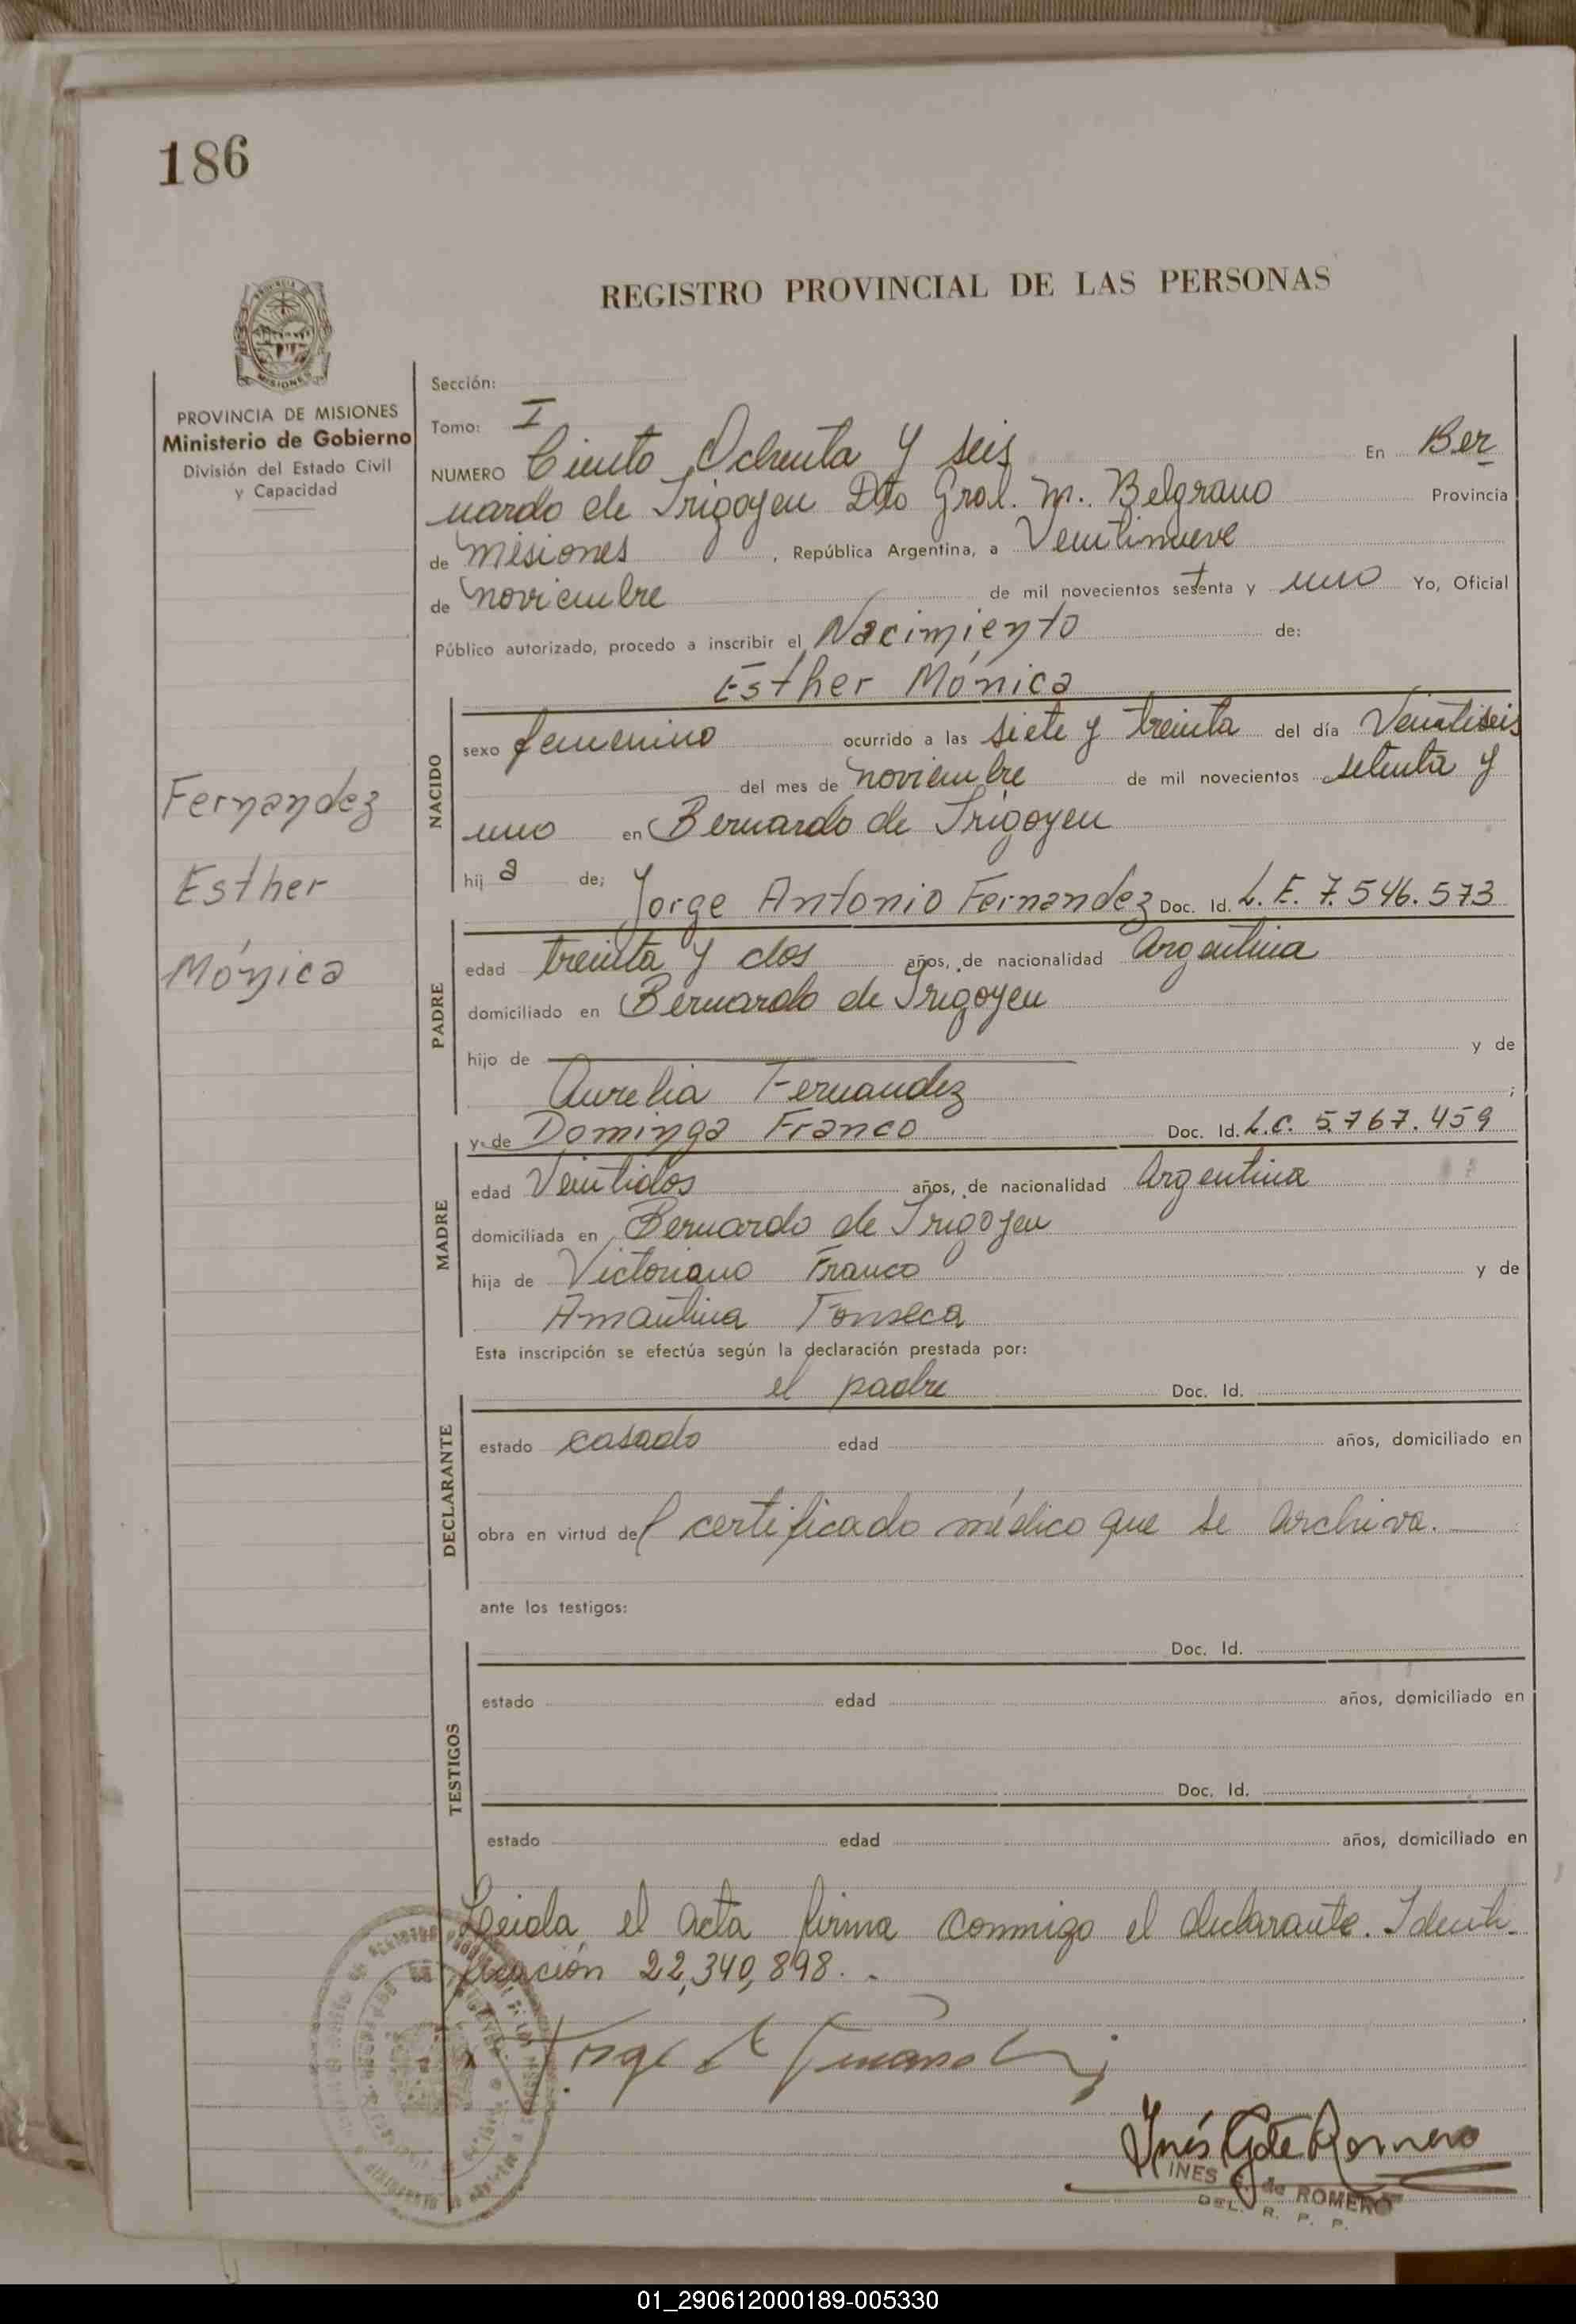 186
REGISTRO PROVINCIAL DE LAS PERSONAS
PROVINCIA DE MISIONES
Ministerio de Gobierno
División del Estado Civil
y Capacidad
Sección:
Tomo: I
NUMERO Ciento Ochenta y seis En Ber
nardo de Irigoyen Dto Gral. M. Belgrano Provincia
de Misiones, República Argentina, a Veintinueve
de noviembre de mil novecientos setenta y uno Yo, Oficial
Público autorizado, procedo a inscribir el Nacimiento de:
Esther Mónica
NACIDO
sexo femenino ocurrido a las siete y treinta del día Veintiseis
del mes de noviembre de mil novecientos setenta y
uno en Bernardo de Irigoyen
hij a de; Jorge Antonio Fernandez Doc. Id. L. E. 7.546.573
Fernandez
Esther
Mónica
PADRE
edad treinta y dos años, de nacionalidad Argentina
domiciliado en Bernardo de Irigoyen
hijo de y de
Aurelia Fernandez ;
y de Dominga Franco Doc. Id. L.C. 5.767.459
MADRE
edad Veintidos años, de nacionalidad Argentina
domiciliada en Bernardo de Irigoyen
hija de Victoriano Franco y de
Amantina Fonseca
Esta inscripción se efectúa según la declaración prestada por:
el padre Doc. Id.
DECLARANTE
estado casado edad años, domiciliado en
obra en virtud del certificado médico que se archiva.
ante los testigos:
Doc. Id.
TESTIGOS
estado edad años, domiciliado en
Doc. Id.
estado edad años, domiciliado en
Leida el acta firma conmigo el declarante. Identi-
ficación 22,340,898.
Inés G de Romero
INES G. de ROMERO
DEL. R. P. P.
01_290612000189-005330